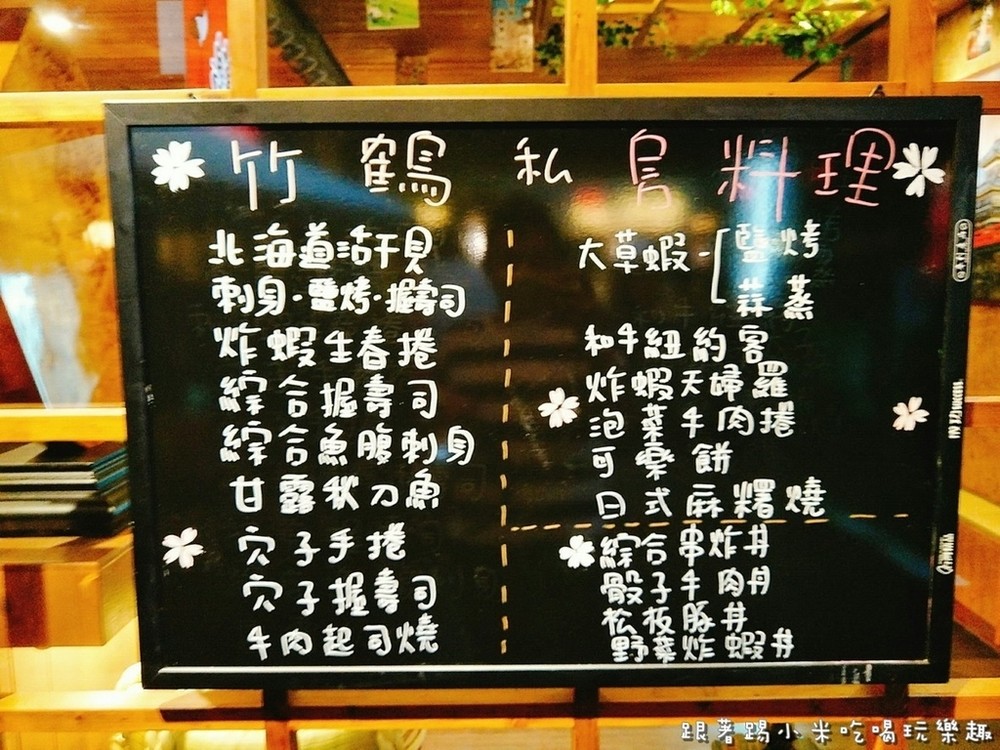 竹鶴 私房料理
北海道活干貝
刺身·鹽烤·握壽司
炸蝦生春捲
綜合握壽司
綜合魚腹刺身
甘露秋刀魚
穴子手捲
穴子握壽司
牛肉起司燒
大草蝦-[鹽烤
蒜蒸
和牛紐約客
炸蝦天婦羅
泡菜牛肉捲
可樂餅
日式麻糬燒
綜合串炸丼
骰子牛肉丼
松板豚丼
野菜炸蝦丼
跟著踢小米吃喝玩樂趣